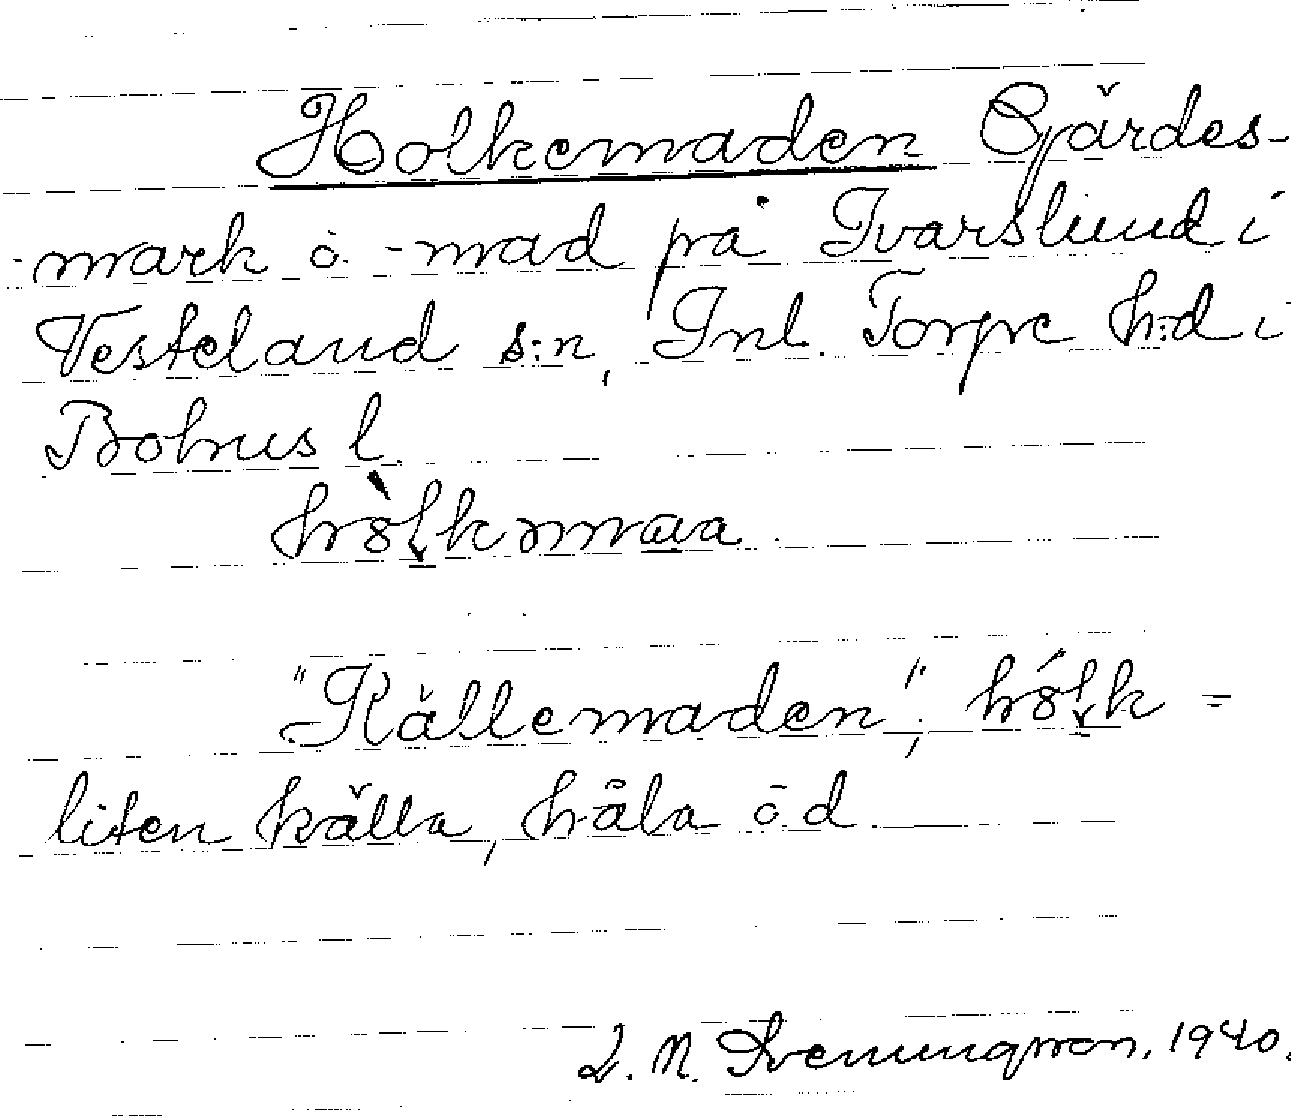 Holkemaden Gärdes-
mark o. -mad på Ivarslund i
Vesteland s:n, Inl. Torpe h:d i
Bohus l.
hòlkəmaa
"Källemaden", hólk =
liten källa, håla o d
J. N. Svenningsson. 1940.